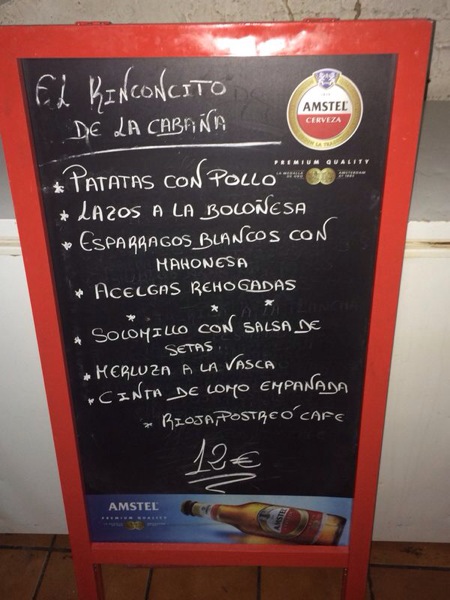 EL RINCONCITO
DE LA CABAÑA
AMSTEL
CERVEZA
PREMIUM QUALITY
* PATATAS CON POLLO
* LAZOS A LA BOLOÑESA
* ESPARRAGOS BLANCOS CON
MAHONESA
* ACELGAS REHOGADAS
* * *
* SOLOMILLO CON SALSA DE
SETAS
* MERLUZA A LA VASCA
* CINTA DE LOMO EMPAÑADA
* RIOJA, POSTRE Ó CAFE
12€
AMSTEL
PREMIUM QUALITY
AMSTEL